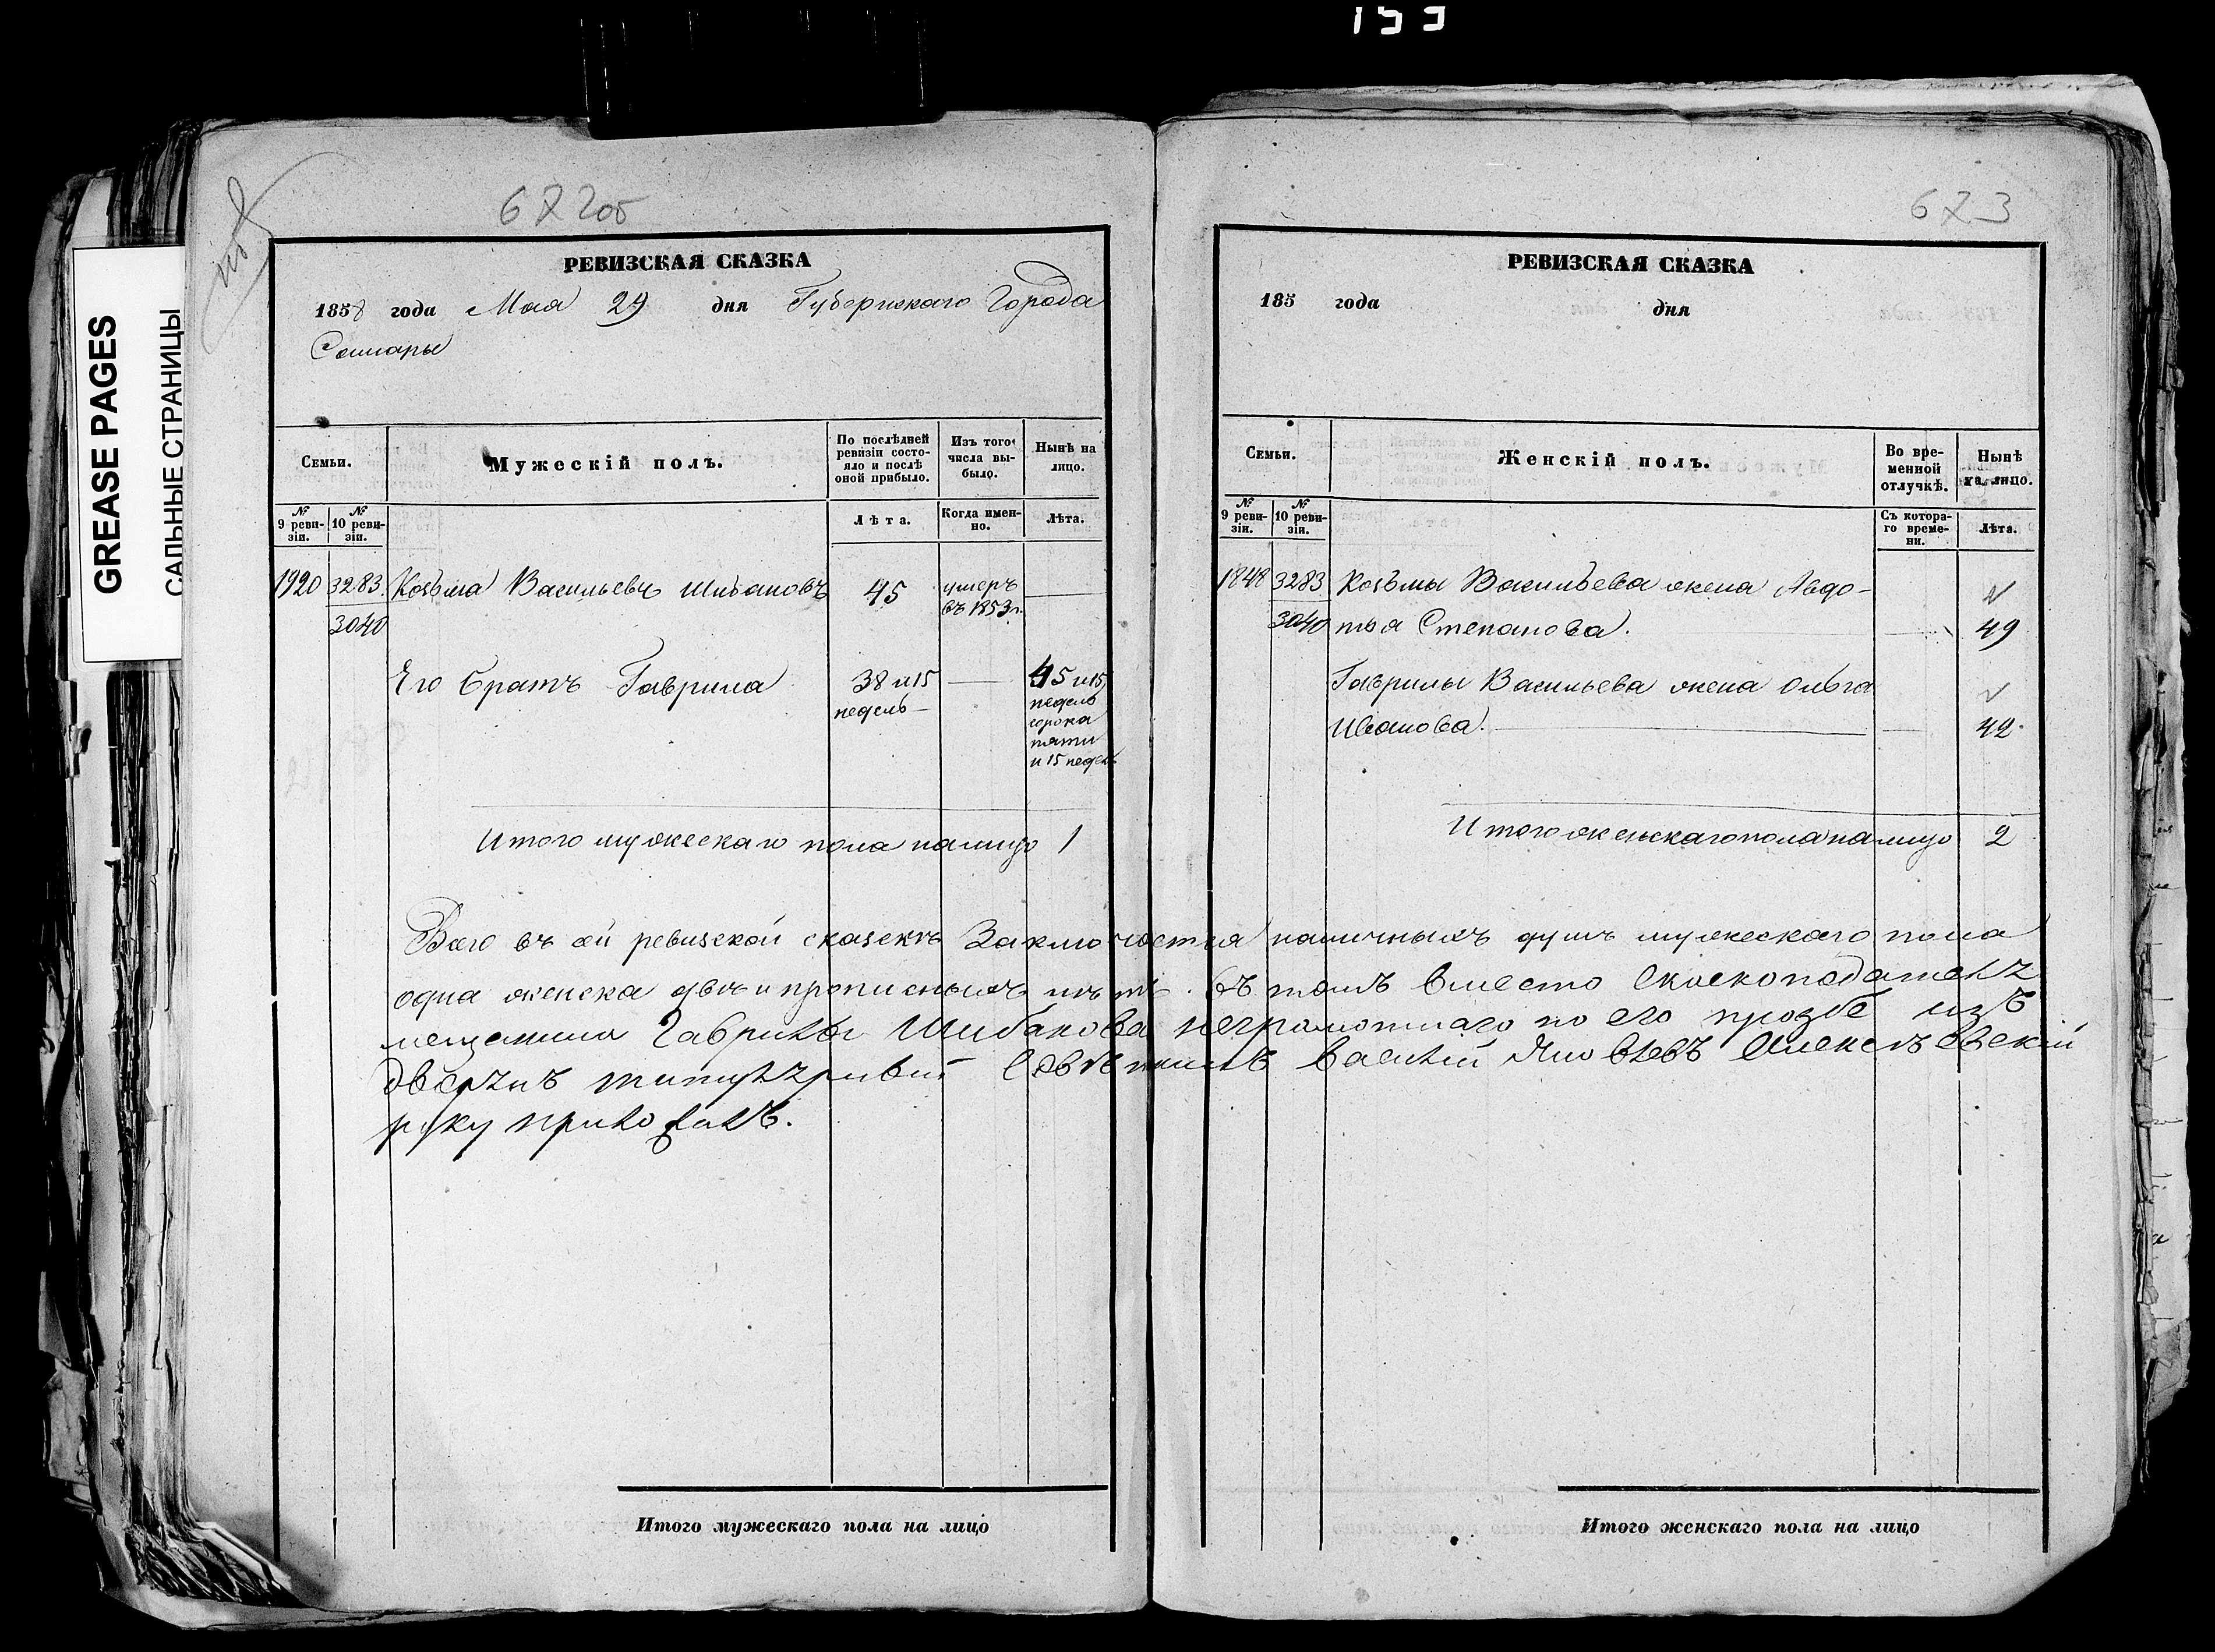 153
GREASE PAGES
САЛЬНЫЕ СТРАНИЦЫ
672об
РЕВИЗСКАЯ СКАЗКА
1858 года Мая 29 дня Губернскаго Города
Самары
Семьи.
Мужескій полъ.
По послѣдней ревизіи состояло и послѣ оной прибыло.
Изъ того числа выбыло.
Нынѣ на лицо.
№ 9 ревизіи.
№ 10 ревизіи.
Лѣта.
Когда именно.
Лѣта.
1920 3283 Козьма Васильевъ Шибановъ 45 умеръ въ 1853 г.
3040
Его братъ Гаврила 38 и 15 недель 45 и 15 недель сорока пяти и 15 недель
Итого мужескаго пола налицо 1
673
РЕВИЗСКАЯ СКАЗКА
185 года дня
Семьи.
Женскій полъ.
Во временной отлучкѣ.
Нынѣ на лицо.
№ 9 ревизіи.
№ 10 ревизіи.
Съ котораго времени.
Лѣта.
1848 3283 Козьмы Васильева жена Авдо-
3040 тья Степанова. 49
Гаврилы Васильева жена Ольга
Иванова. 42
Итого женскаго пола налицо 2
Всего въ сей ревизской сказкѣ заключается наличныхъ душъ мужескаго пола
одна женска двѣ и прописныхъ нѣтъ. Въ томъ вместо
мещанина Гаврилы Шибанова неграмотнаго по его прозбе изъ
дворянъ титулярный Советникъ Василий
руку приложилъ.
Итого мужескаго пола на лицо
Итого женскаго пола на лицо